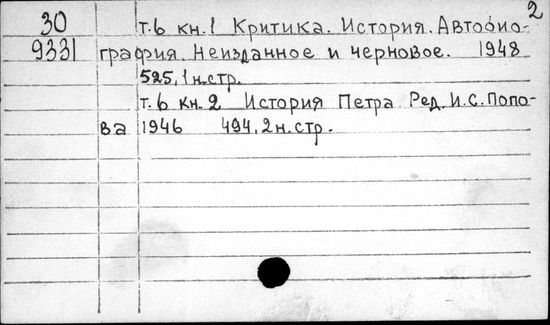 2
30 т.6 кн.1 Критика. История. Автобио-
9331 графия. Неизданное и черновое. 1948
525, 1 н.стр.
т.6 кн.2 История Петра Ред. И.С. Попо-
ва 1946 494, 2 н.стр.